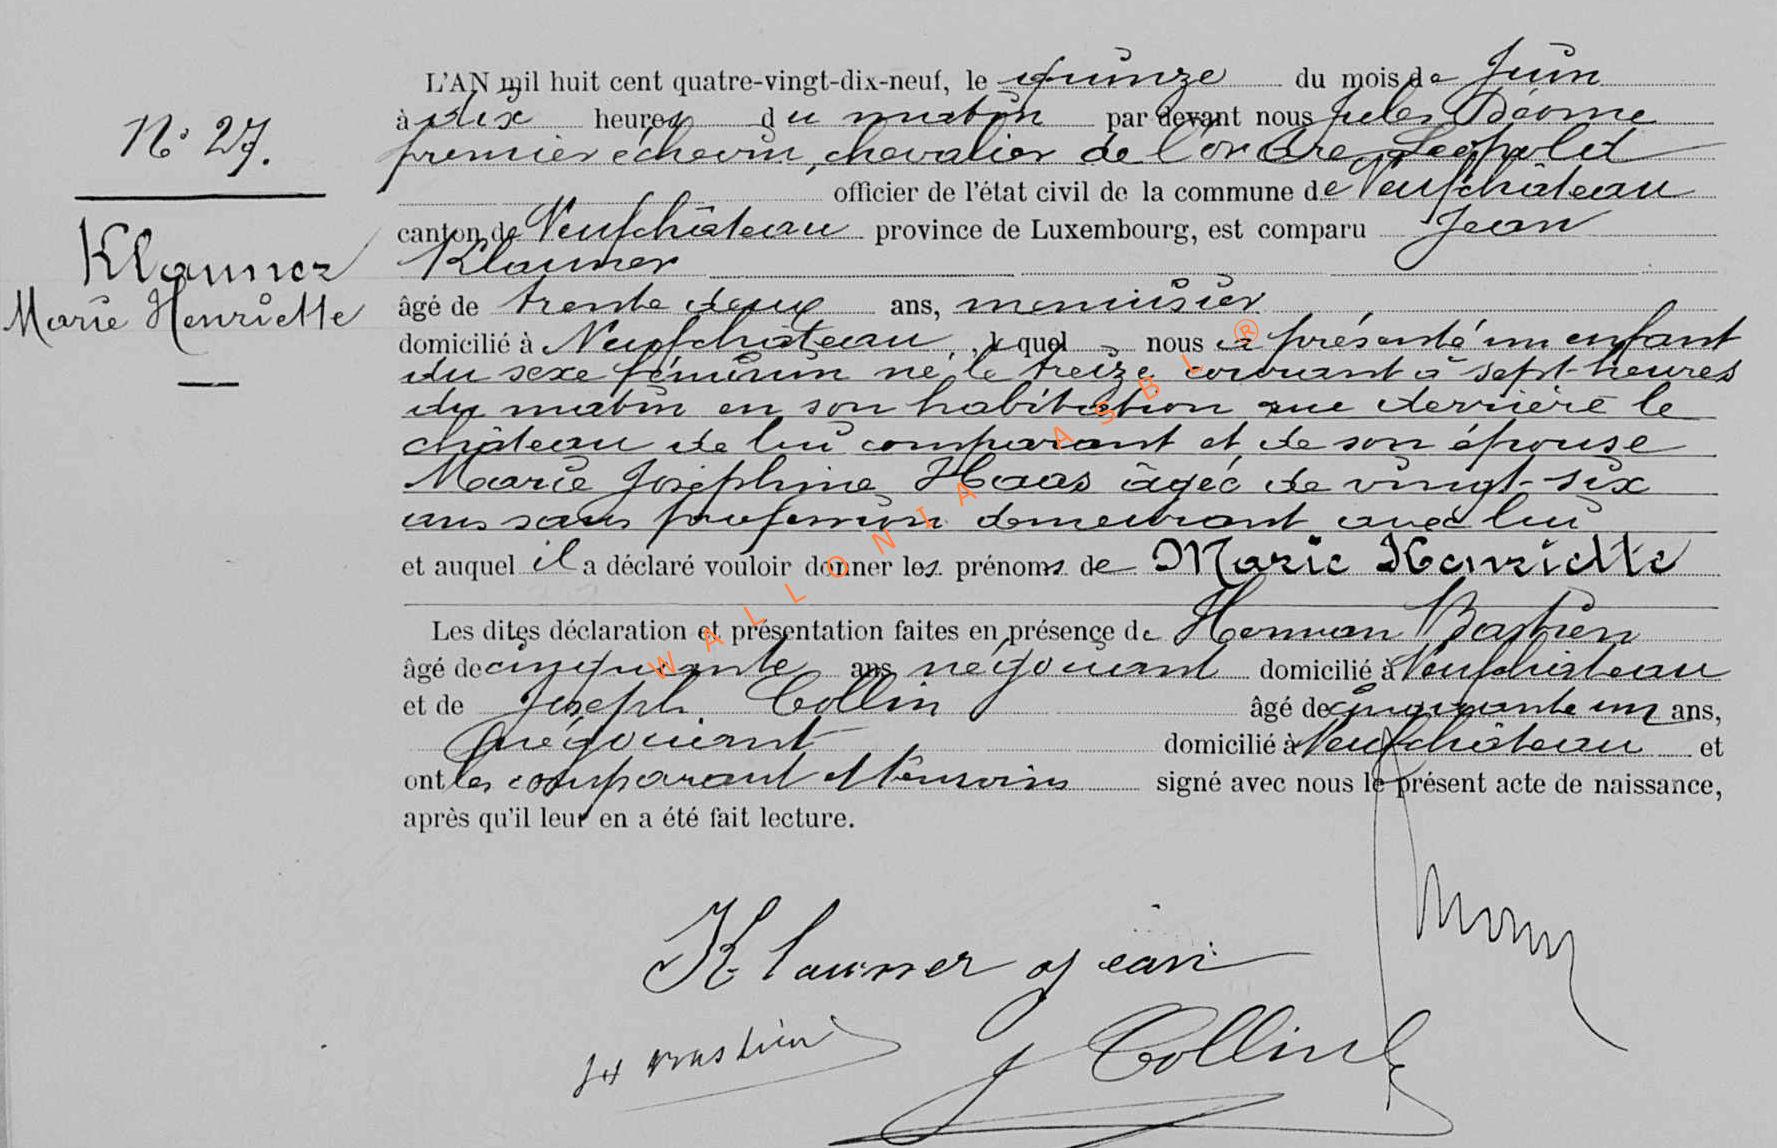 L'AN mil huit cent quatre-vingt-dix-neuf, le quinze du mois de Juin
N° 27.
à dix heures du matin par devant nous Jules Déome
premier échevin, chevalier de l'ordre Léopold
officier de l'état civil de la commune de Neufchâteau
canton de Neufchâteau province de Luxembourg, est comparu Jean
Klauner
Klauner
Marie Henriette
âgé de trente deux ans, menuisier
domicilié à Neufchâteau, lequel nous a présenté un enfant
du sexe féminin né le treize courant à sept heures
du matin en son habitation rue derrière le
château de lui comparant et de son épouse
Marie Joséphine Haas âgée de vingt-six
ans sans profession demeurant avec lui
et auquel il a déclaré vouloir donner les prénoms de Marie Henriette
Les dites déclaration et présentation faites en présence de Herman Bastien
âgé de cinquante ans négociant domicilié à Neufchâteau
et de Joseph Collin âgé de cinquante un ans,
négociant domicilié à Neufchâteau et
ont les comparant et témoins signé avec nous le présent acte de naissance,
après qu'il leur en a été fait lecture.
Klauner Jean
J Collin
WALLONIA ASBL ®